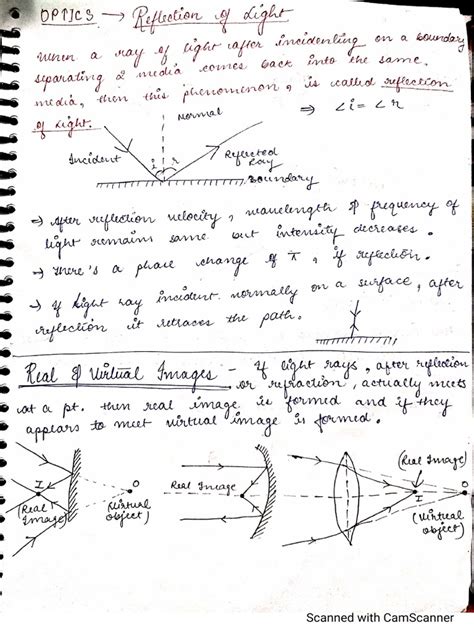 OPTICS → Reflection of Light
When a ray of light after incidenting on a boundary
separating 2 media comes back into the same
media, then this phenomenon, is called reflection
of Light.
⇒ ∠i = ∠r
Normal
Incident
i
r
Reflected
ray
Boundary
⇒ After reflection velocity, wavelength & frequency of
light remains same but intensity decreases.
→ There's a phase change of π, if reflection.
→ If Light ray incident normally on a surface, after
reflection it retraces the path.
Real & Virtual Images - If light rays, after reflection
or refraction, actually meets
at a pt. then real image is formed and if they
appears to meet virtual image is formed.
I
(Real
Image)
O
(Virtual
object)
Real Image
(Real Image)
I
O
(Virtual
object)
Scanned with CamScanner